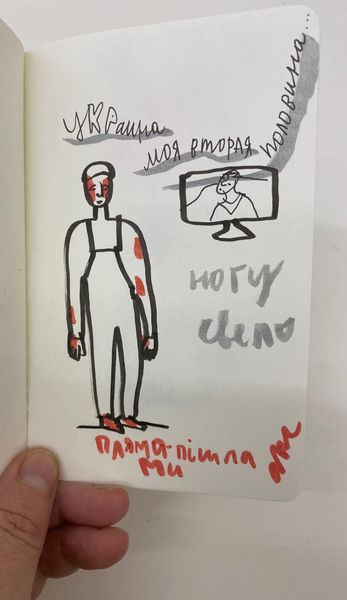 Украина
моя вторая половина...
ногу
свело
пляма-пішла
ми